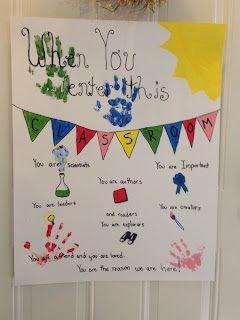 When You
enter this
CLASSROOM
You are scientists
You are Important
You are authors
You are leaders
You are creators
and readers
You are explorers
You are a friend and you are loved.
You are the reason we are here!